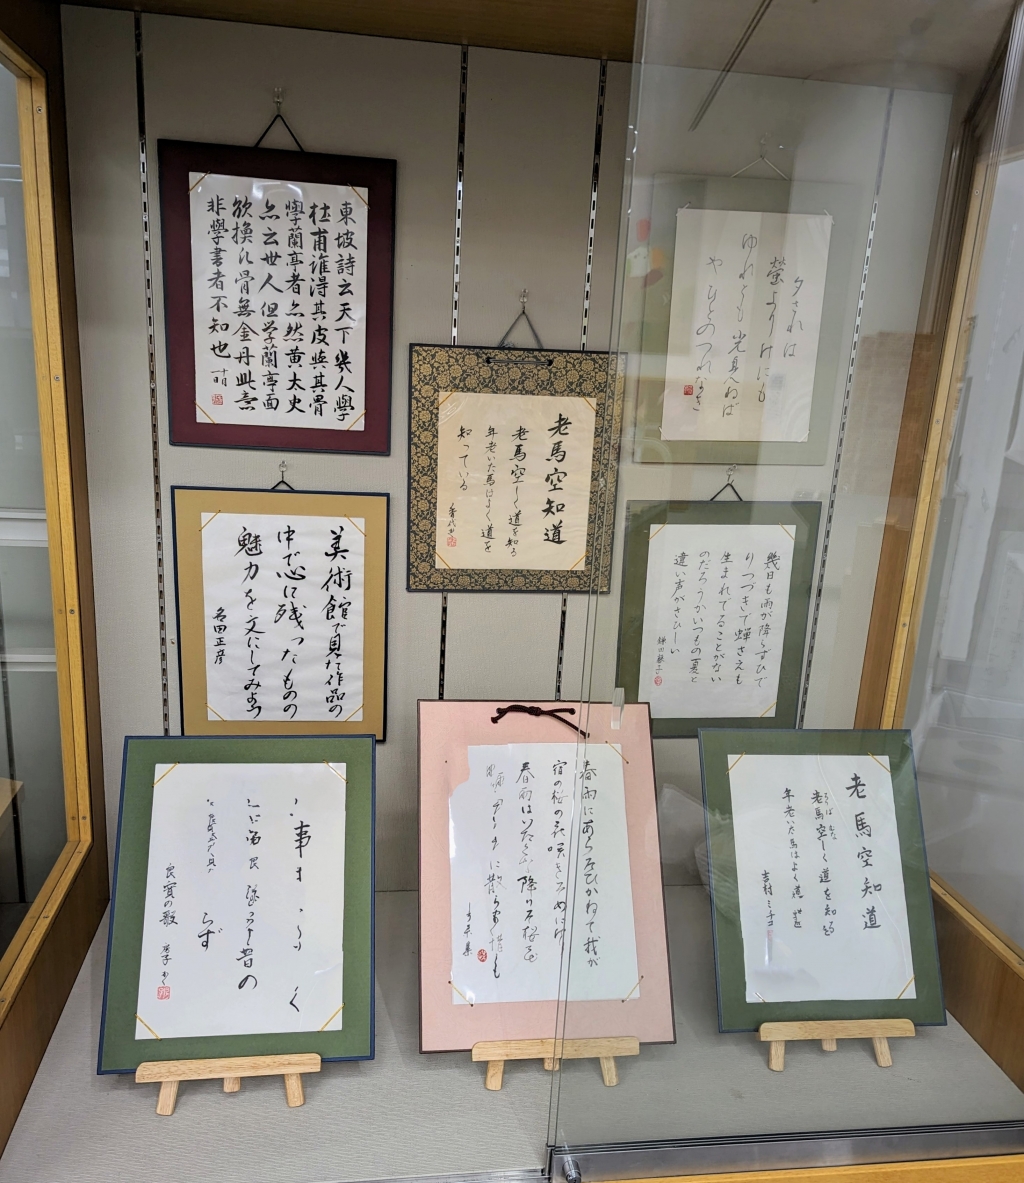 東坡詩云天下幾人學
杜甫誰得其皮與其骨
學蘭亭者亦然黄太史
亦云世人但学蘭亭面
欲換凡骨無金丹此意
非學書者不知也
老馬空知道
老馬空しく道を知る
年老いた馬はよく道を
知っている
夕されは
螢よりけにも
ゆれとも 光見ねば
や ひとのつれなき
美術館で見た作品の
中で心に残ったものの
魅力を文にしてみよう
名田正彦
幾日も雨が降らずひで
りつづきで蝉さえも
生まれてることがない
のだろうかいつもの夏と
違い声がさびしい
春雨にあらそひかねて我が
宿の桜の花咲きそめにけ
春雨はいたくな降りそ桜花
に散らまく惜しも
老馬空知道
老馬空しく道を知る
年老いた馬はよく道
吉村ミチコ
事
昔の
らず
良寛の歌